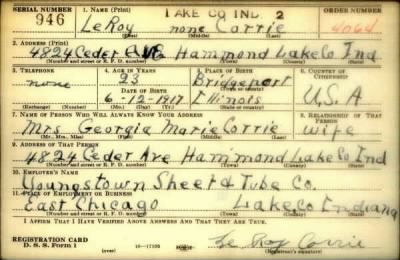 SERIAL NUMBER 1. NAME (Print) LAKE CO IND. 2 ORDER NUMBER
946 LeRoy none Corrie 4064
(First) (Middle) (Last)
2. ADDRESS (Print)
4824 Ceder AVE Hammond Lake Co Ind
(Number and street or R. F. D. number) (Town) (County) (State)
3. TELEPHONE 4. AGE IN YEARS 5. PLACE OF BIRTH 6. COUNTRY OF CITIZENSHIP
none 23 Bridgeport
DATE OF BIRTH
6-12-1917 Illinois U.S.A
(Exchange) (Number) (Mo.) (Day) (Yr.) (State or country)
7. NAME OF PERSON WHO WILL ALWAYS KNOW YOUR ADDRESS 8. RELATIONSHIP OF THAT PERSON
Mrs Georgia Marie Corrie wife
(Mr., Mrs., Miss) (First) (Middle) (Last)
9. ADDRESS OF THAT PERSON
4824 Ceder Ave Hammond Lake Co Ind
(Number and street or R. F. D. number) (Town) (County) (State)
10. EMPLOYER'S NAME
Youngstown Sheet & Tube Co.
11. PLACE OF EMPLOYMENT OR BUSINESS
East Chicago Lake Co Indiana
(Number and street or R. F. D. number) (Town) (County) (State)
I AFFIRM THAT I HAVE VERIFIED ABOVE ANSWERS AND THAT THEY ARE TRUE.
REGISTRATION CARD
D. S. S. Form 1 16-17105 Le Roy Corrie
(Registrant's signature)